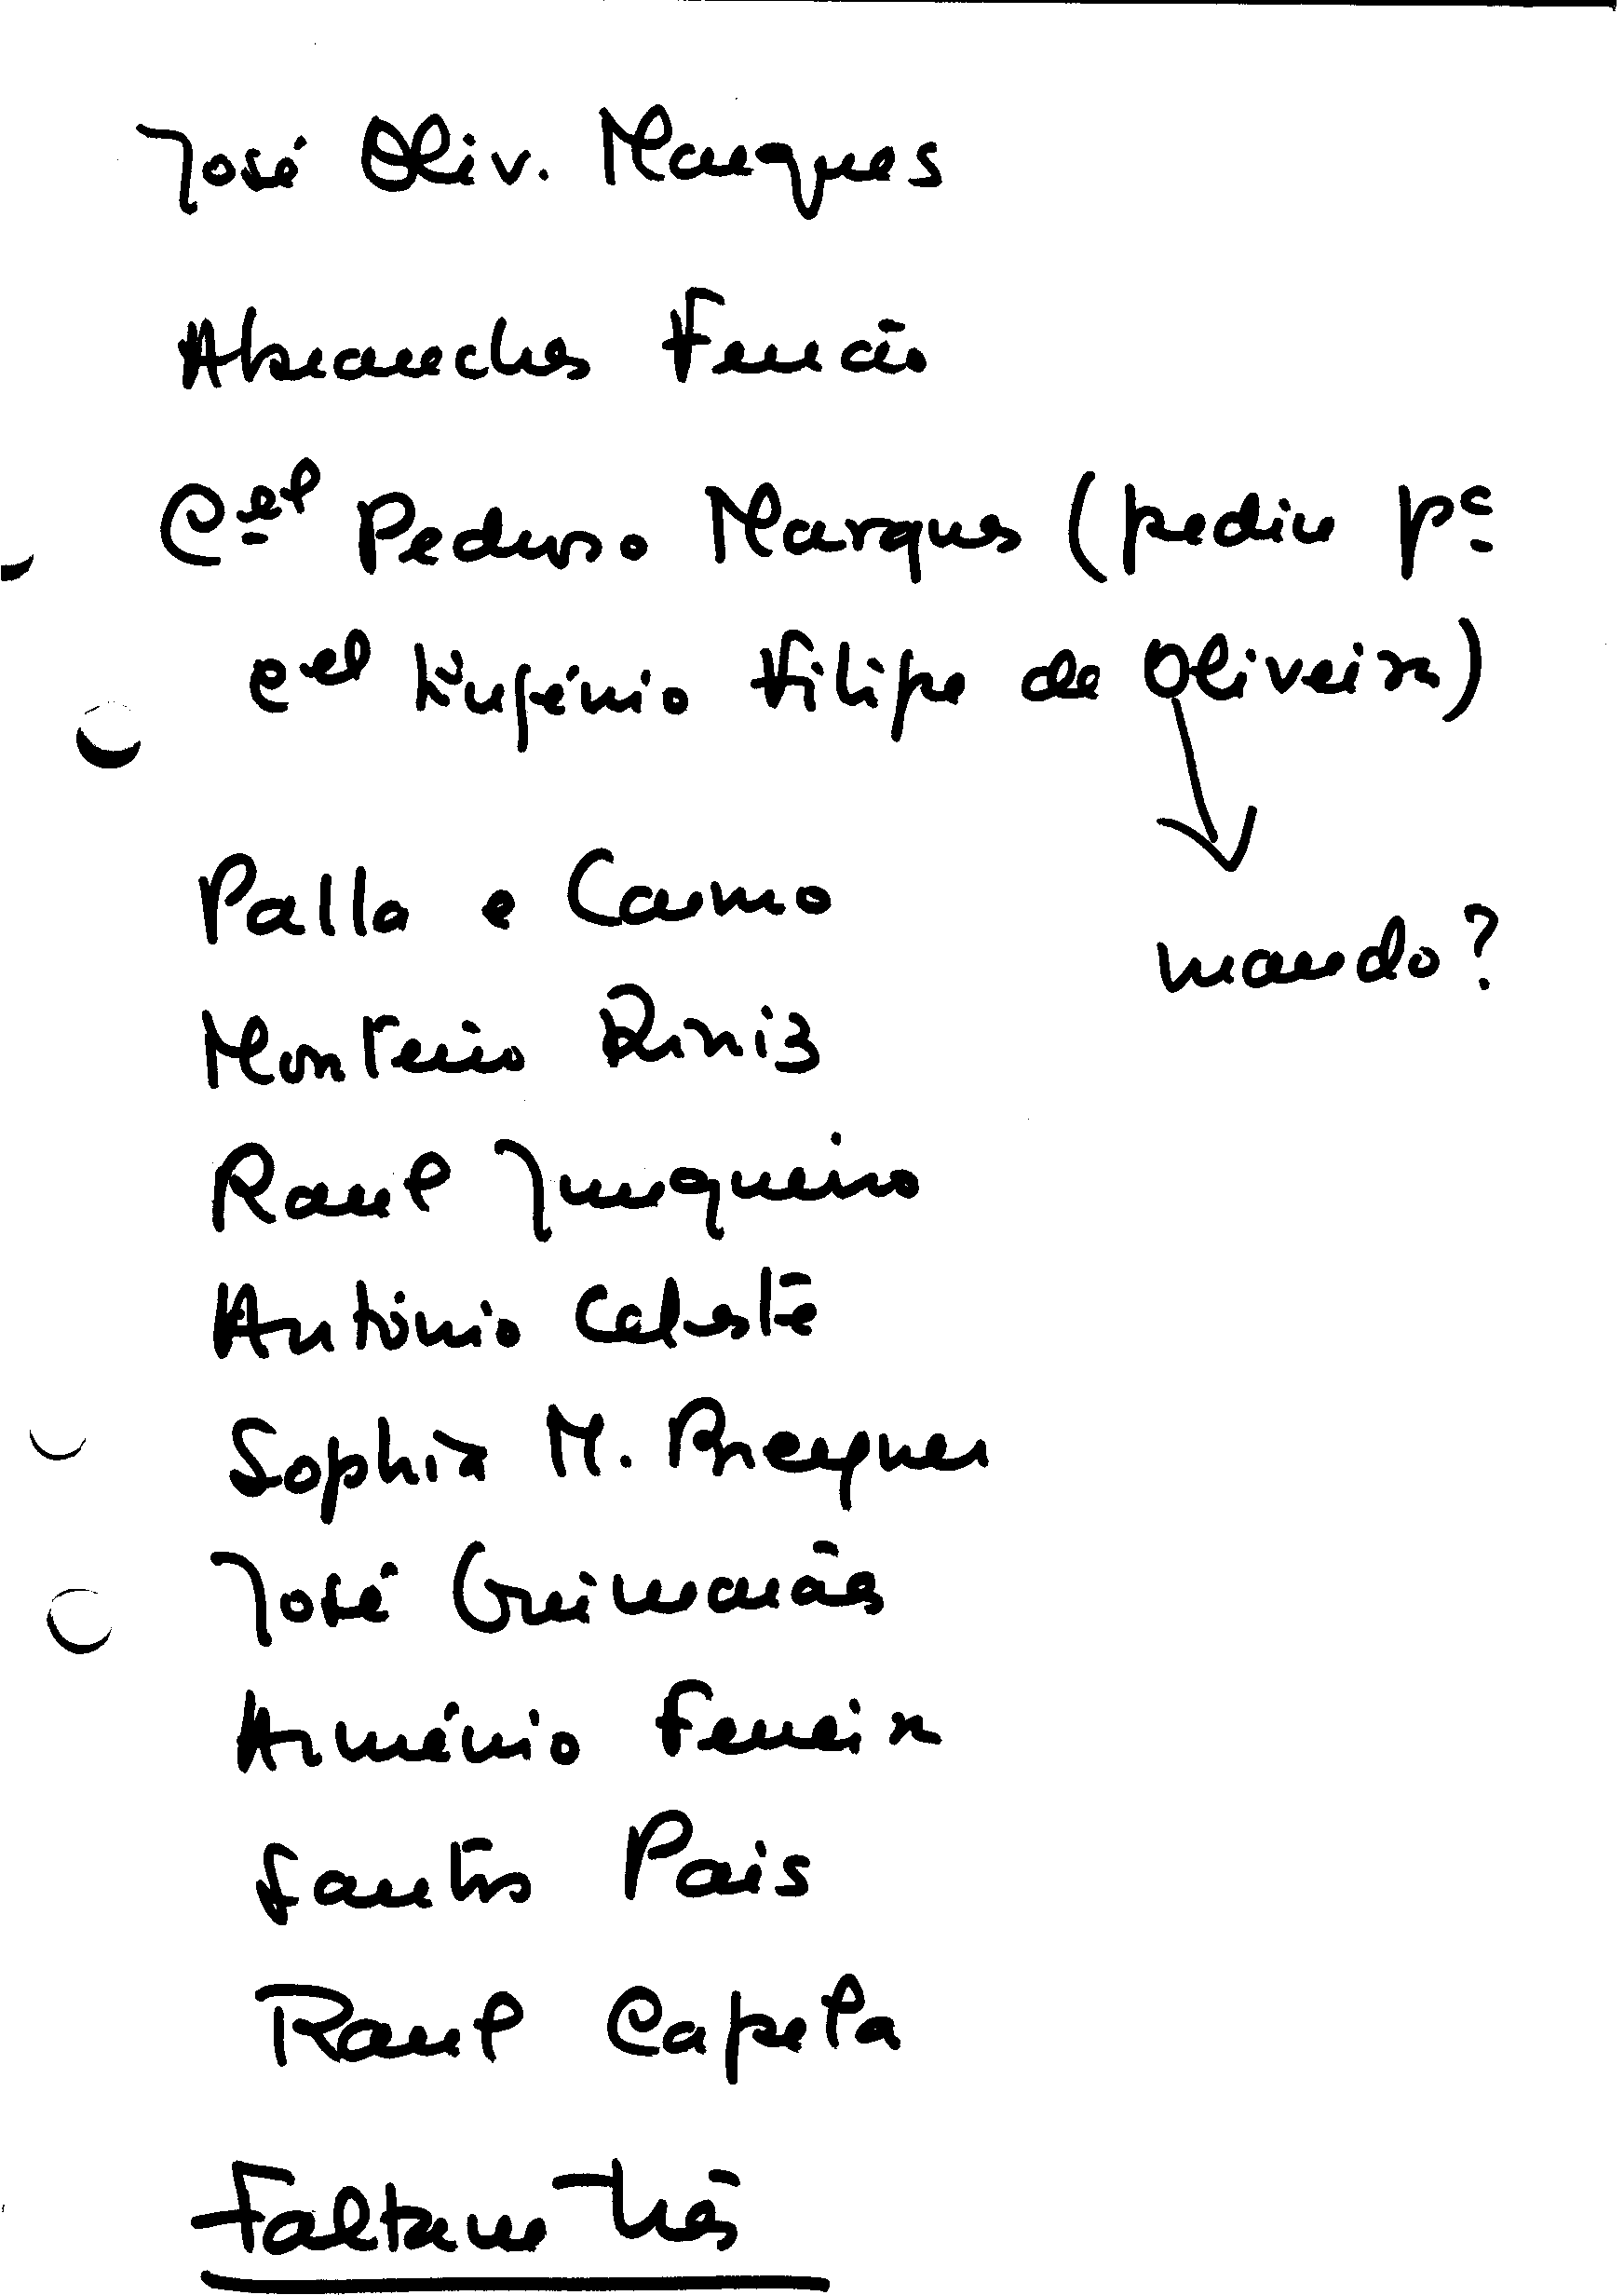 José Oliv. Marques
Abranches Ferrão
Cel Pedroso Marques (pediu pª
cel Eugénio Filipe de Oliveira)
Palla e Carmo
mando?
Monteiro Diniz
Raul Junqueiro
António Celeste
Sophia M. Breyner
José Guimarães
Arménio Ferreira
Santos Pais
Raul Capela
Faltam três